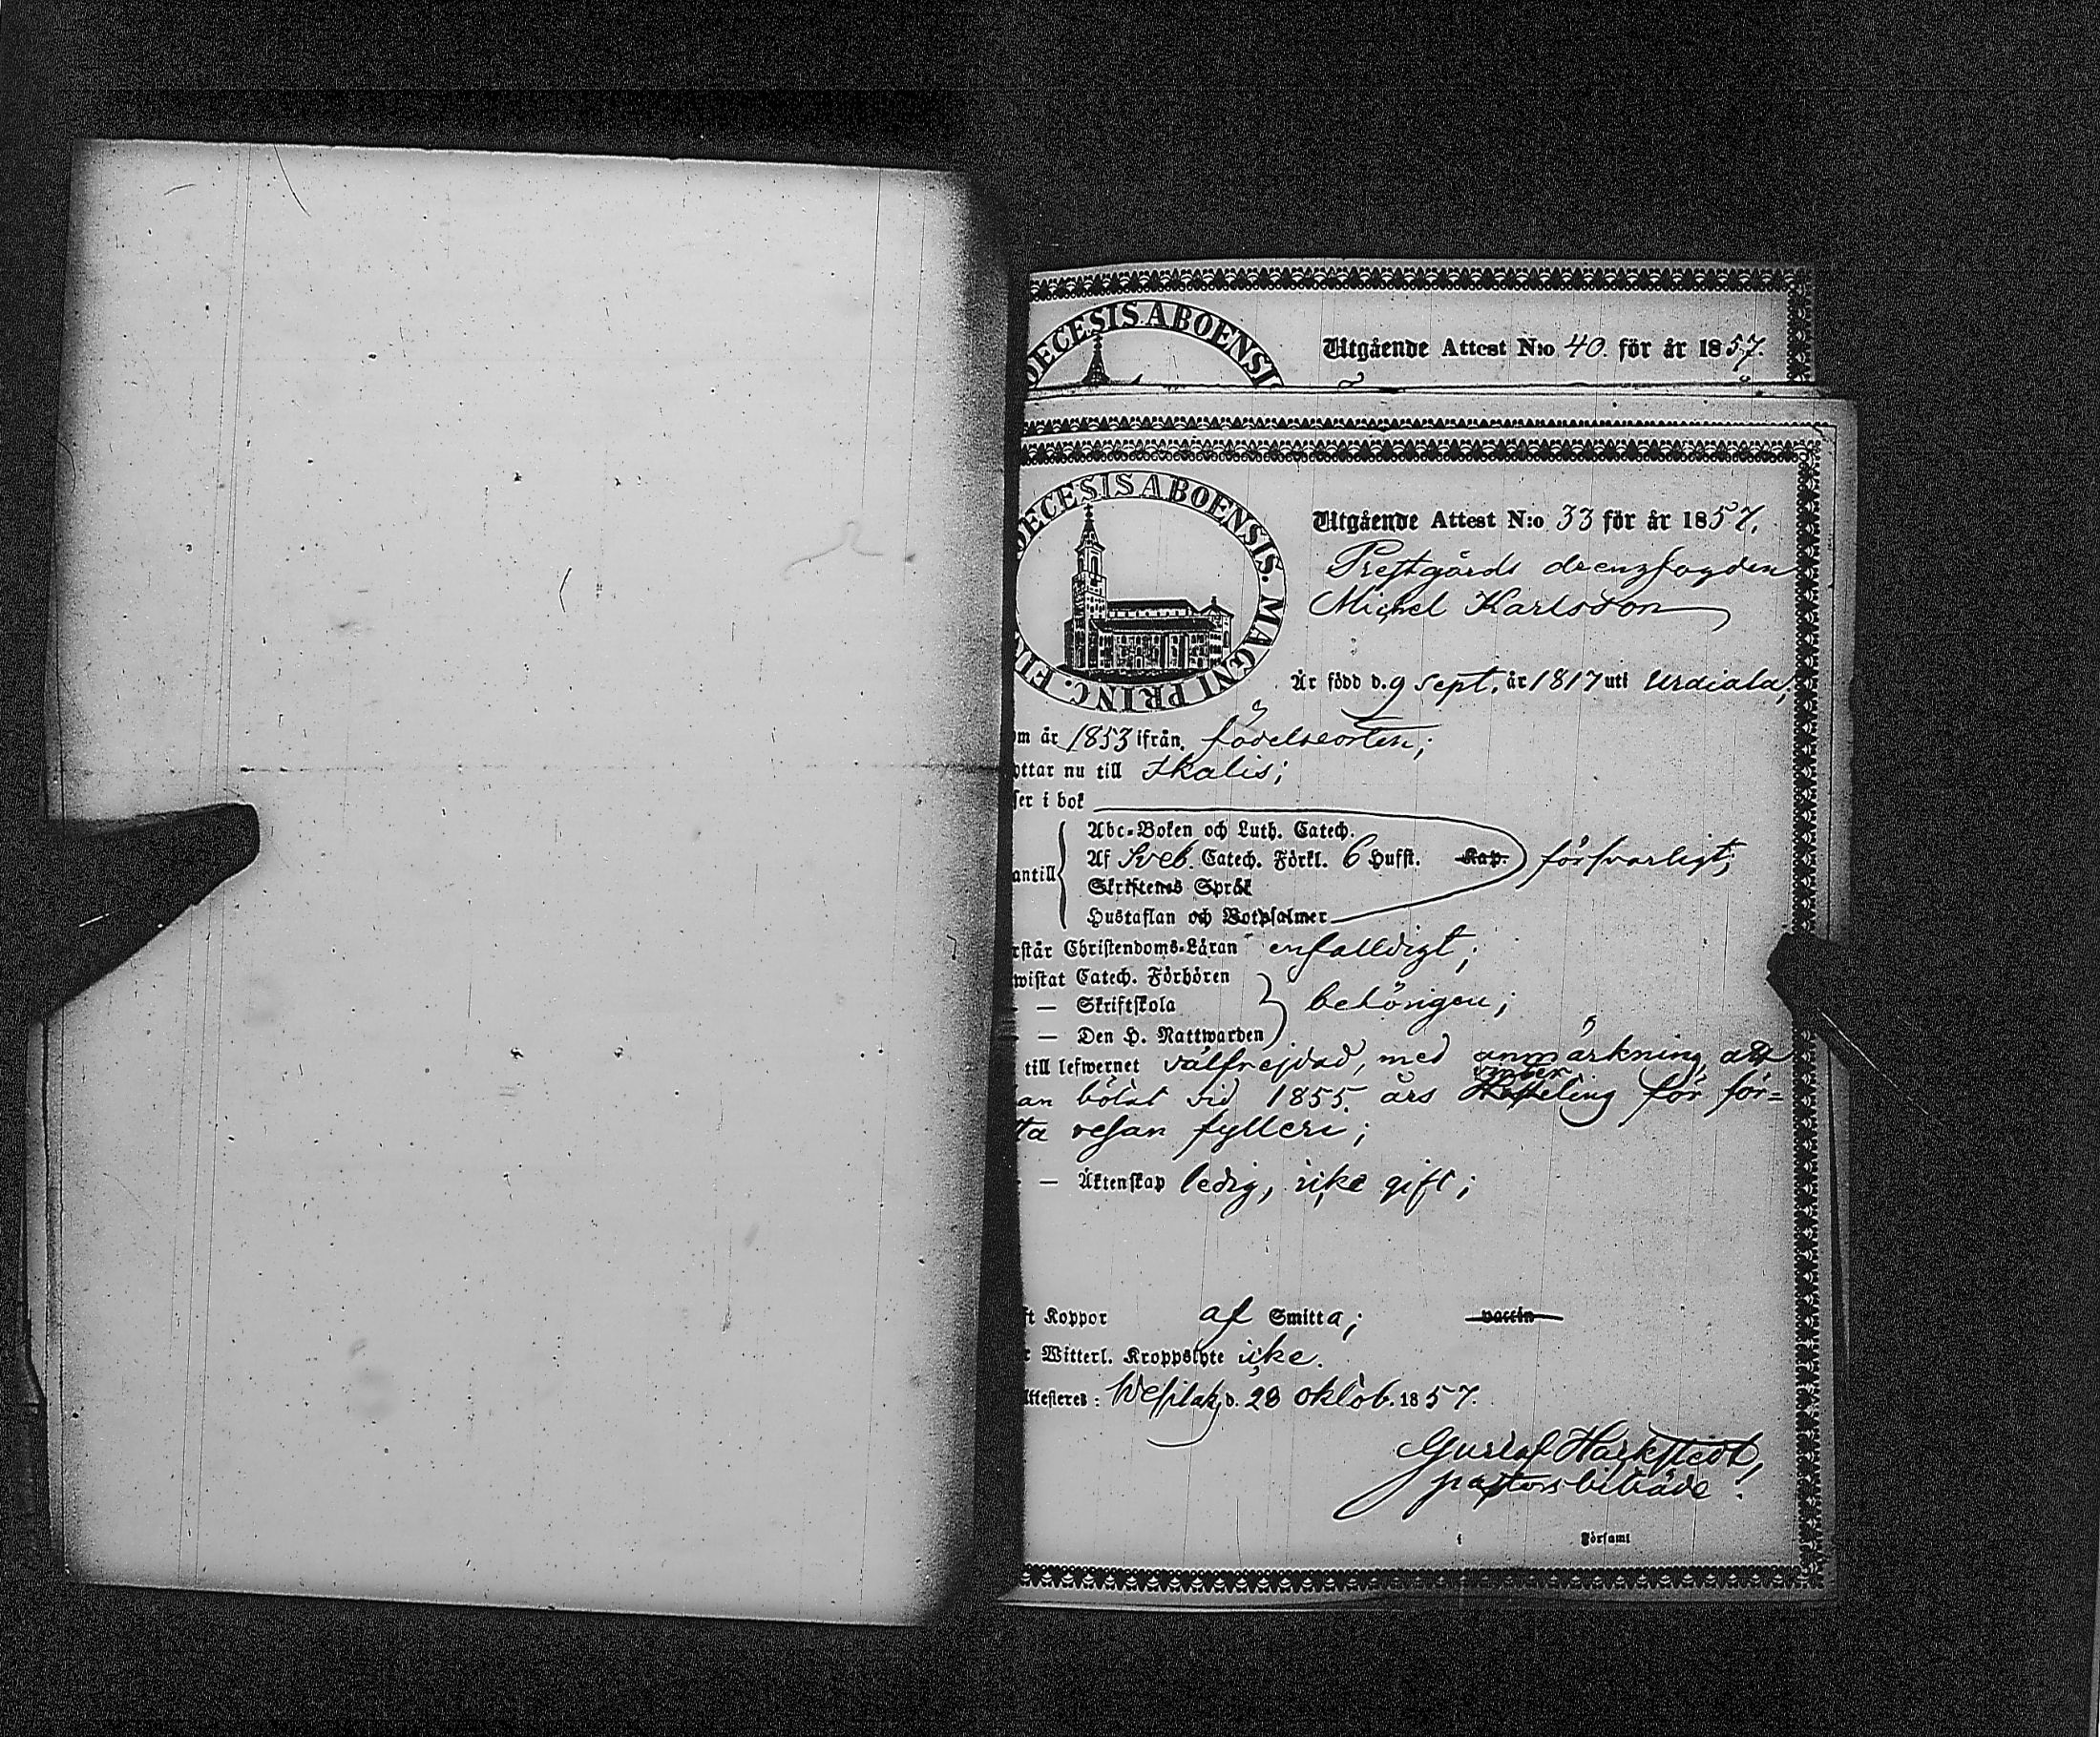 DECESIS ABOENSI
Utgående Attest N:o 40. för år 1857.
DECESIS ABOENSIS. MAGNI PRINC. FIN
Utgående Attest N:o 33 för år 1857.
Prestgårds drengfogden
Michel Karlsson
Är född d. 9 Sept. år 1817 uti Urdiala;
om år 1853 ifrån födelseorten;
ottar nu till Ikalis;
ser i bok
Abc-Boken och Luth. Catech.
Af Sveb. Catech. Förkl. 6 Hufst. Kap. försvarligt;
antill
Skriftenes Språk
Hustaflan och Botpsalmer
rstår Christendoms-Läran enfalldigt;
wistat Catech. Förhören
— Skriftskola behörigen;
— Den H. Nattwarden
till lefwernet välfrejdad, med anmärkning att
an bötat vid 1855 års Vinter för för-
sta resan fylleri;
— Äktenskap ledig, icke gift;
ft Koppor af Smitta; vaccin
r Witterl. Kroppslyte icke.
Attesteres: Wesilaks d. 28 oktob. 1857.
Gustaf Harkstedt,
pastorsbiträde.
Församl